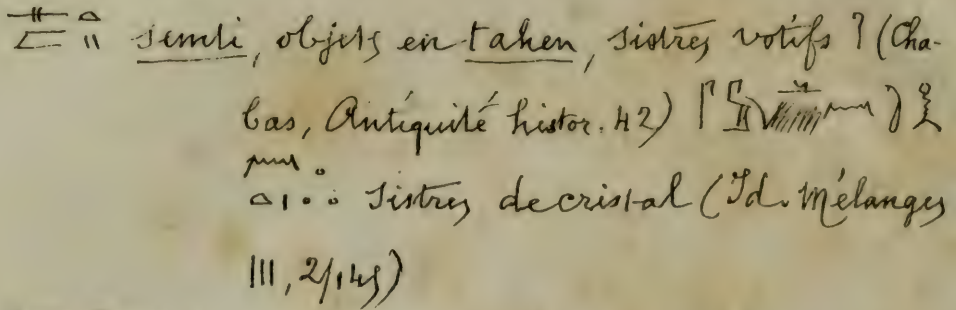 semti, objets en tahen, sistres votifs ? (Cha-
bas, Antiquité histor. 42)
sistres de cristal (Id. Mélanges
III, 2/149)